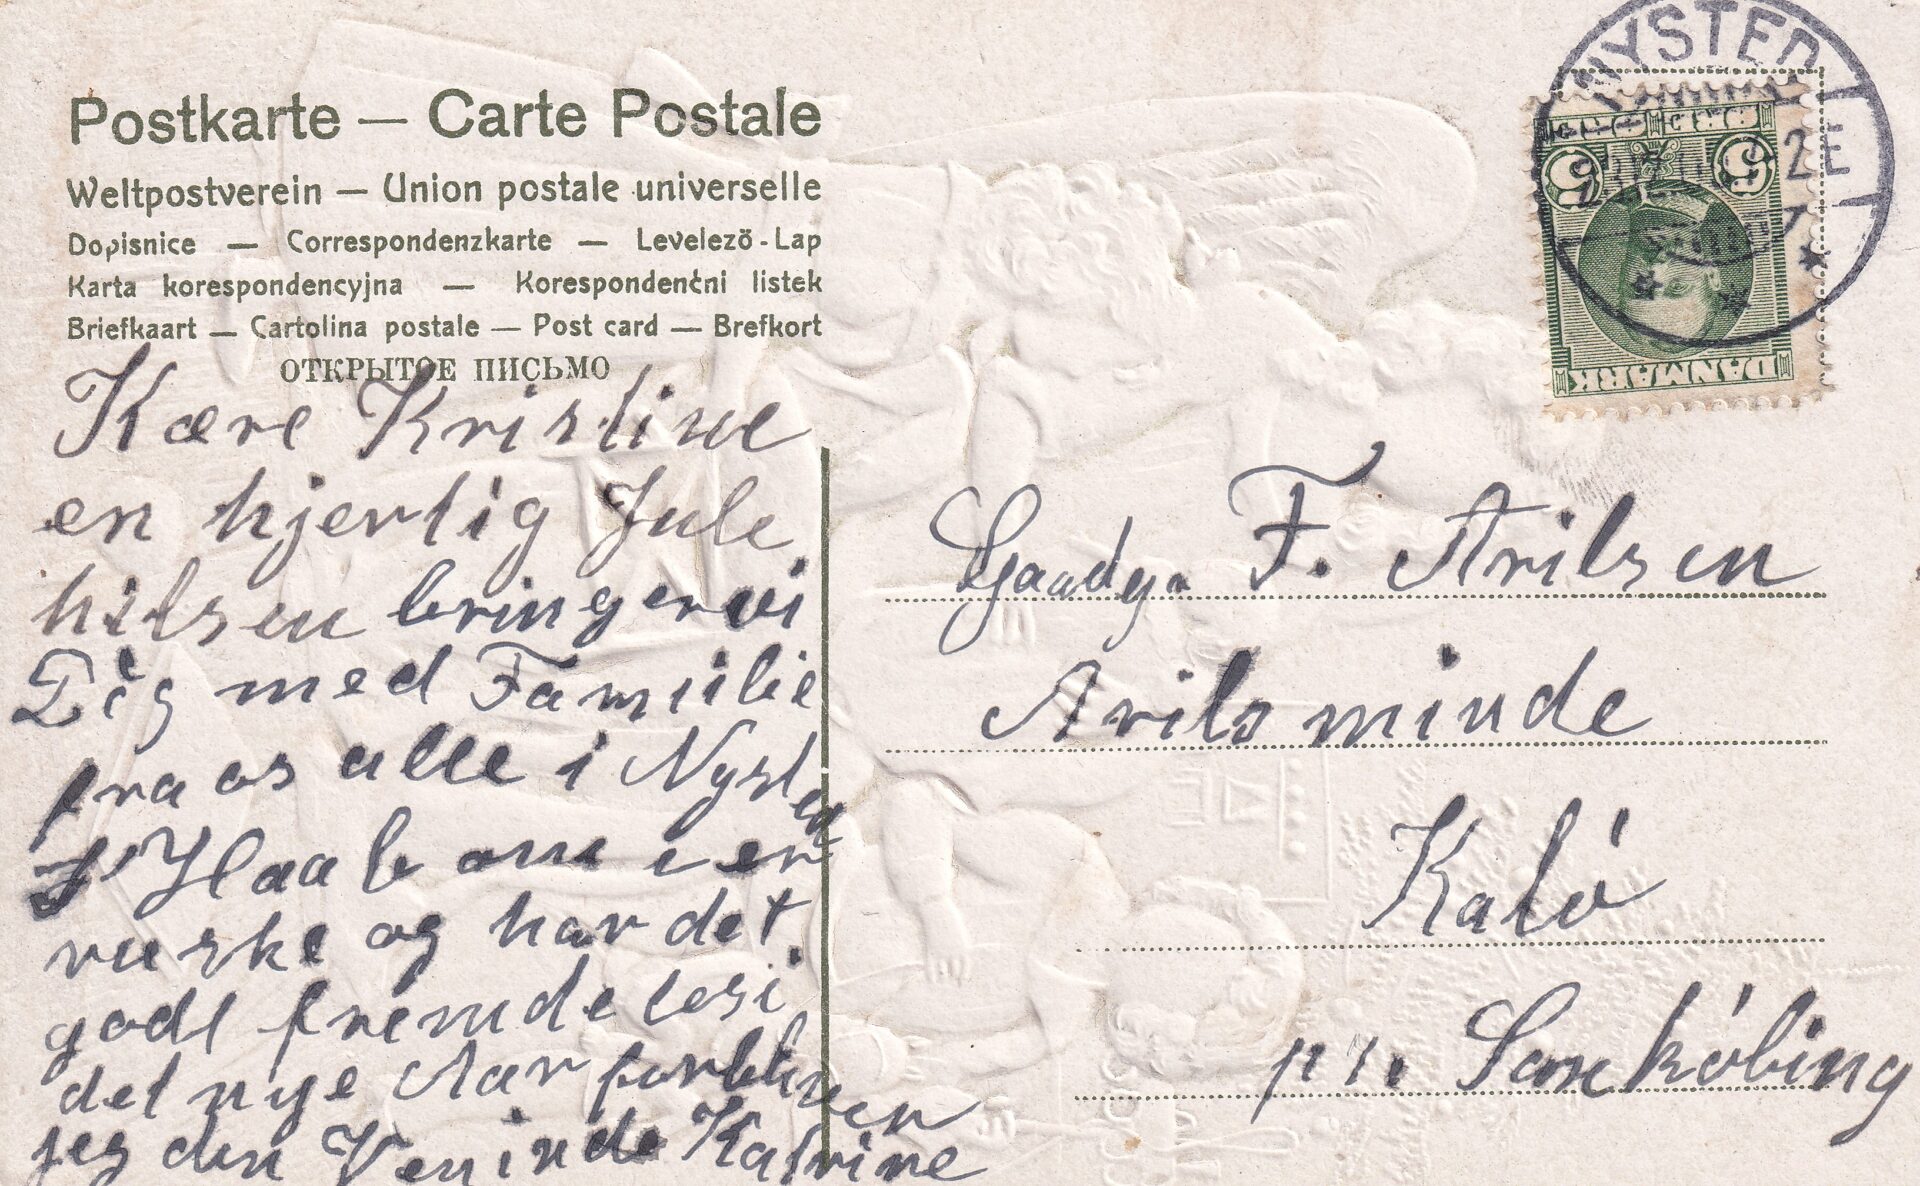 Postkarte — Carte Postale
Weltpostverein — Union postale universelle
Dopisnice — Correspondenzkarte — Levelező-Lap
Karta korespondencyjna — Korespondenčni listek
Briefkaart — Cartolina postale — Post card — Brefkort
ОТКРЫТОЕ ПИСЬМО
Kære Kristine
en hjertig Jule
hilsen bringer vi
Dig med Familie
fra os alle i Nysted
Haab om i er
raske og har det
godt fremdeles i
det nye Aar forbliver
jeg din Veninde Katrine
NYSTED
2E
5 5
DANMARK
Gaadgr F. Arilsen
Arilsminde
Kalø
pr. Saxkøbing